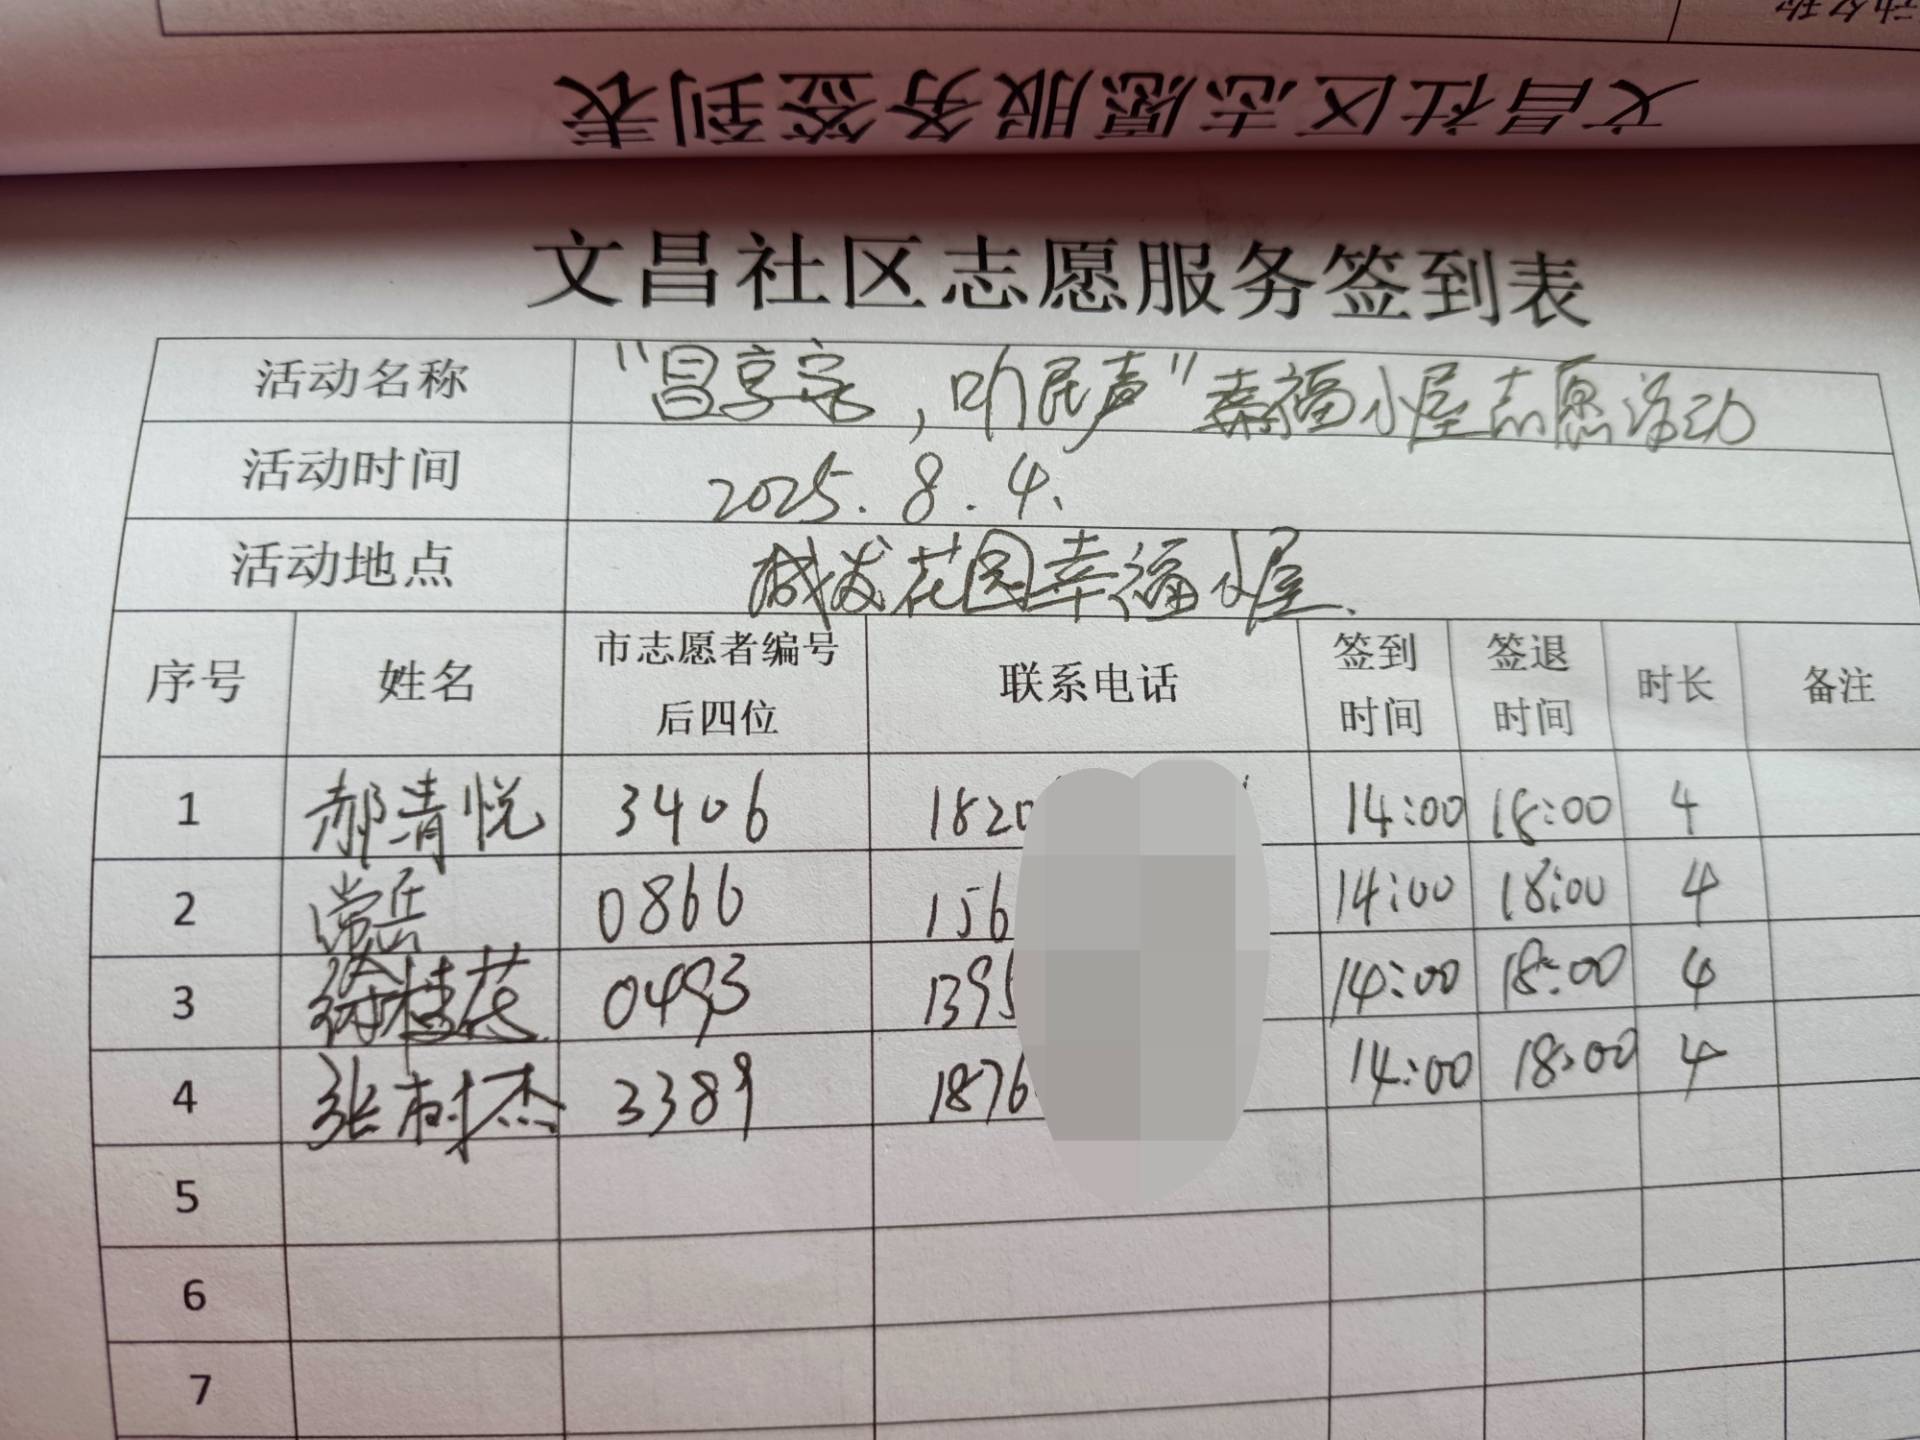 动名称
文昌社区志愿服务签到表
文昌社区志愿服务签到表
活动名称 “昌享家，听民声”幸福小屋志愿活动
活动时间 2025.8.4.
活动地点 城发花园幸福小屋.
序号 姓名 市志愿者编号后四位 联系电话 签到时间 签退时间 时长 备注
1 郝清悦 3406 1820 14:00 18:00 4
2 常兵 0866 156 14:00 18:00 4
3 徐桂花 0493 139 14:00 18:00 4
4 张树杰 3389 1876 14:00 18:00 4
5
6
7